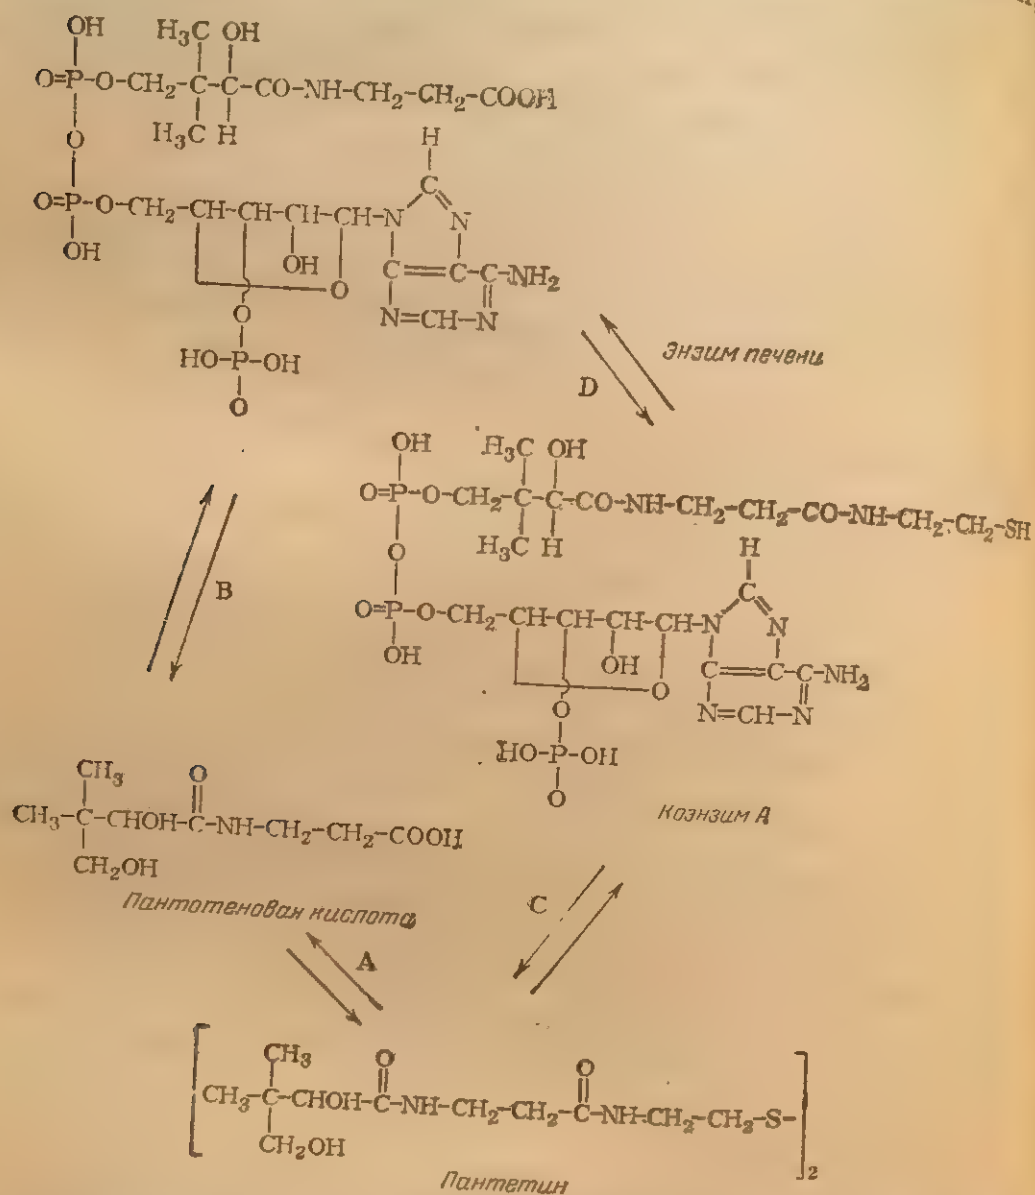 OH H₃C OH
O=P-O-CH₂-C-C-CO-NH-CH₂-CH₂-COOH
H₃C H
O
H
C
O=P-O-CH₂-CH-CH-CH-CH-N N
OH
OH
C=C-C-NH₂
O
N=CH-N
O
HO-P-OH
O
Энзим печени
D
OH H₃C OH
O=P-O-CH₂-C-C-CO-NH-CH₂-CH₂-CO-NH-CH₂-CH₂-SH
H₃C H
O
H
C
B
O=P-O-CH₂-CH-CH-CH-CH-N N
OH
OH
C=C-C-NH₂
O
N=CH-N
O
HO-P-OH
O
Коэнзим A
CH₃ O
CH₃-C-CHOH-C-NH-CH₂-CH₂-COOH
CH₂OH
Пантотеновая кислота
C
A
CH₃ O O
CH₃-C-CHOH-C-NH-CH₂-CH₂-C-NH-CH₂-CH₂-S-
CH₂OH
2
Пантетин